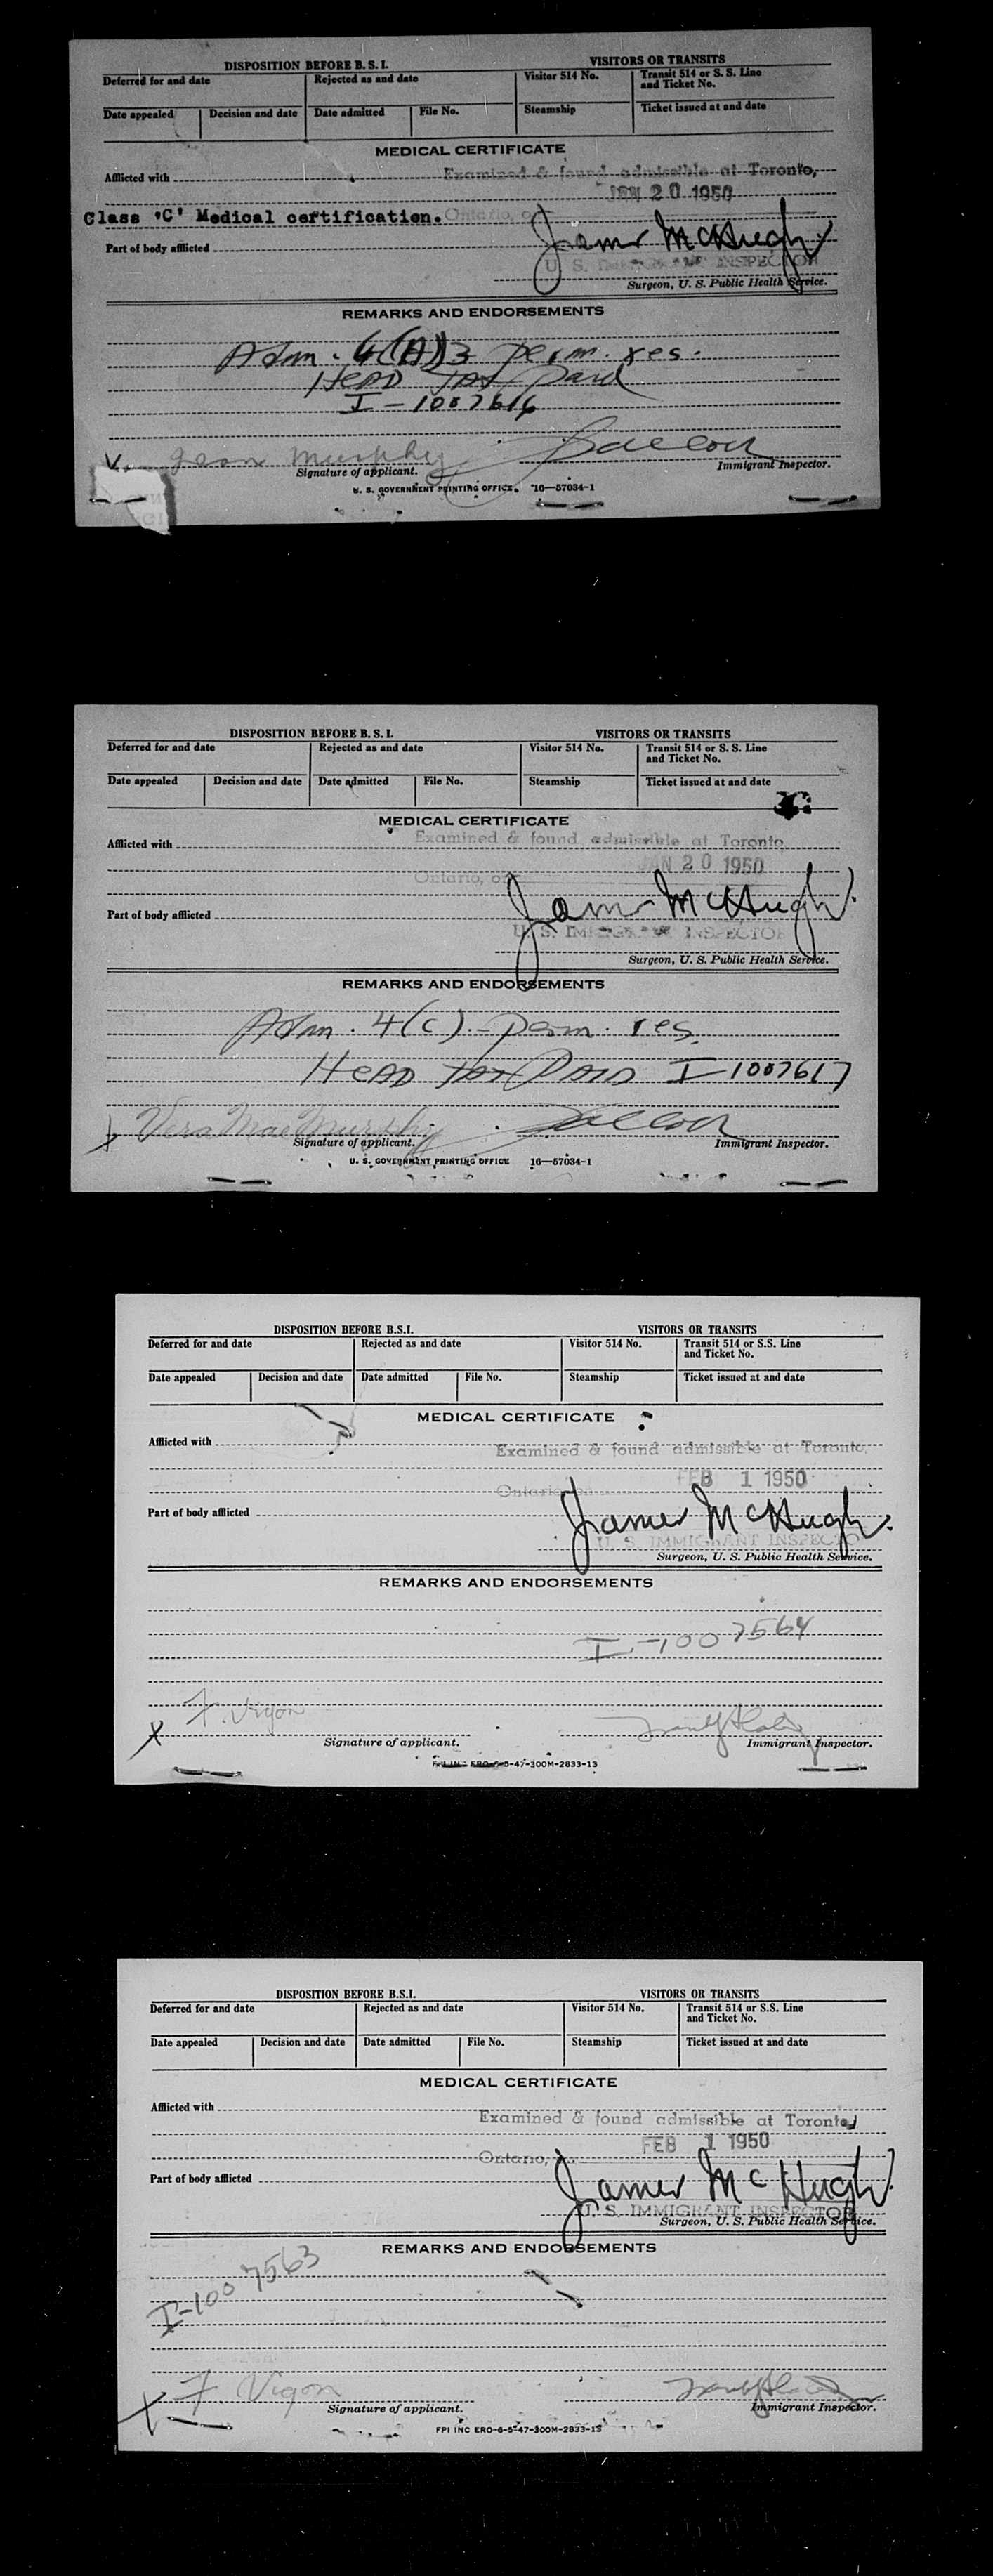 DISPOSITION BEFORE B. S. I. VISITORS OR TRANSITS
Deferred for and date Rejected as and date Visitor 514 No. Transit 514 or S. S. Line and Ticket No.
Date appealed Decision and date Date admitted File No. Steamship Ticket issued at and date
MEDICAL CERTIFICATE
Afflicted with Examined & found admissible at Toronto,
JAN 20 1950
Class 'C' Medical certification. Ontario, on
James McHugh
Part of body afflicted
U. S. IMMIGRANT INSPECTOR
Surgeon, U. S. Public Health Service.
REMARKS AND ENDORSEMENTS
Adm. 4(A)3 perm. res.
HEAD TAX paid
I-1007616
Jean Murphy
Signature of applicant. Immigrant Inspector.
U. S. GOVERNMENT PRINTING OFFICE 16—57034-1
DISPOSITION BEFORE B. S. I. VISITORS OR TRANSITS
Deferred for and date Rejected as and date Visitor 514 No. Transit 514 or S. S. Line and Ticket No.
Date appealed Decision and date Date admitted File No. Steamship Ticket issued at and date
MEDICAL CERTIFICATE
Afflicted with Examined & found admissible at Toronto,
JAN 20 1950
Ontario, on
James McHugh
Part of body afflicted
U. S. IMMIGRANT INSPECTOR
Surgeon, U. S. Public Health Service.
REMARKS AND ENDORSEMENTS
Adm. 4(c) - perm. res.
HEAD TAX PAID I-1007617
X Vera Mae Murphy
Signature of applicant. Immigrant Inspector.
U. S. GOVERNMENT PRINTING OFFICE 16—57034-1
DISPOSITION BEFORE B.S.I. VISITORS OR TRANSITS
Deferred for and date Rejected as and date Visitor 514 No. Transit 514 or S.S. Line and Ticket No.
Date appealed Decision and date Date admitted File No. Steamship Ticket issued at and date
MEDICAL CERTIFICATE
Afflicted with Examined & found admissible at Toronto,
FEB 1 1950
Ontario,
James McHugh
Part of body afflicted
U. S. IMMIGRANT INSPECTOR
Surgeon, U. S. Public Health Service.
REMARKS AND ENDORSEMENTS
I-1007564
X F. Vigon
Signature of applicant. Immigrant Inspector.
FPI INC ERO-6-5-47-300M-2833-13
DISPOSITION BEFORE B.S.I. VISITORS OR TRANSITS
Deferred for and date Rejected as and date Visitor 514 No. Transit 514 or S.S. Line and Ticket No.
Date appealed Decision and date Date admitted File No. Steamship Ticket issued at and date
MEDICAL CERTIFICATE
Afflicted with Examined & found admissible at Toronto,
FEB 1 1950
Ontario,
James McHugh
Part of body afflicted
U. S. IMMIGRANT INSPECTOR
Surgeon, U. S. Public Health Service.
REMARKS AND ENDORSEMENTS
I-1007563
X F Vigon
Signature of applicant. Immigrant Inspector.
FPI INC ERO-6-5-47-300M-2833-13